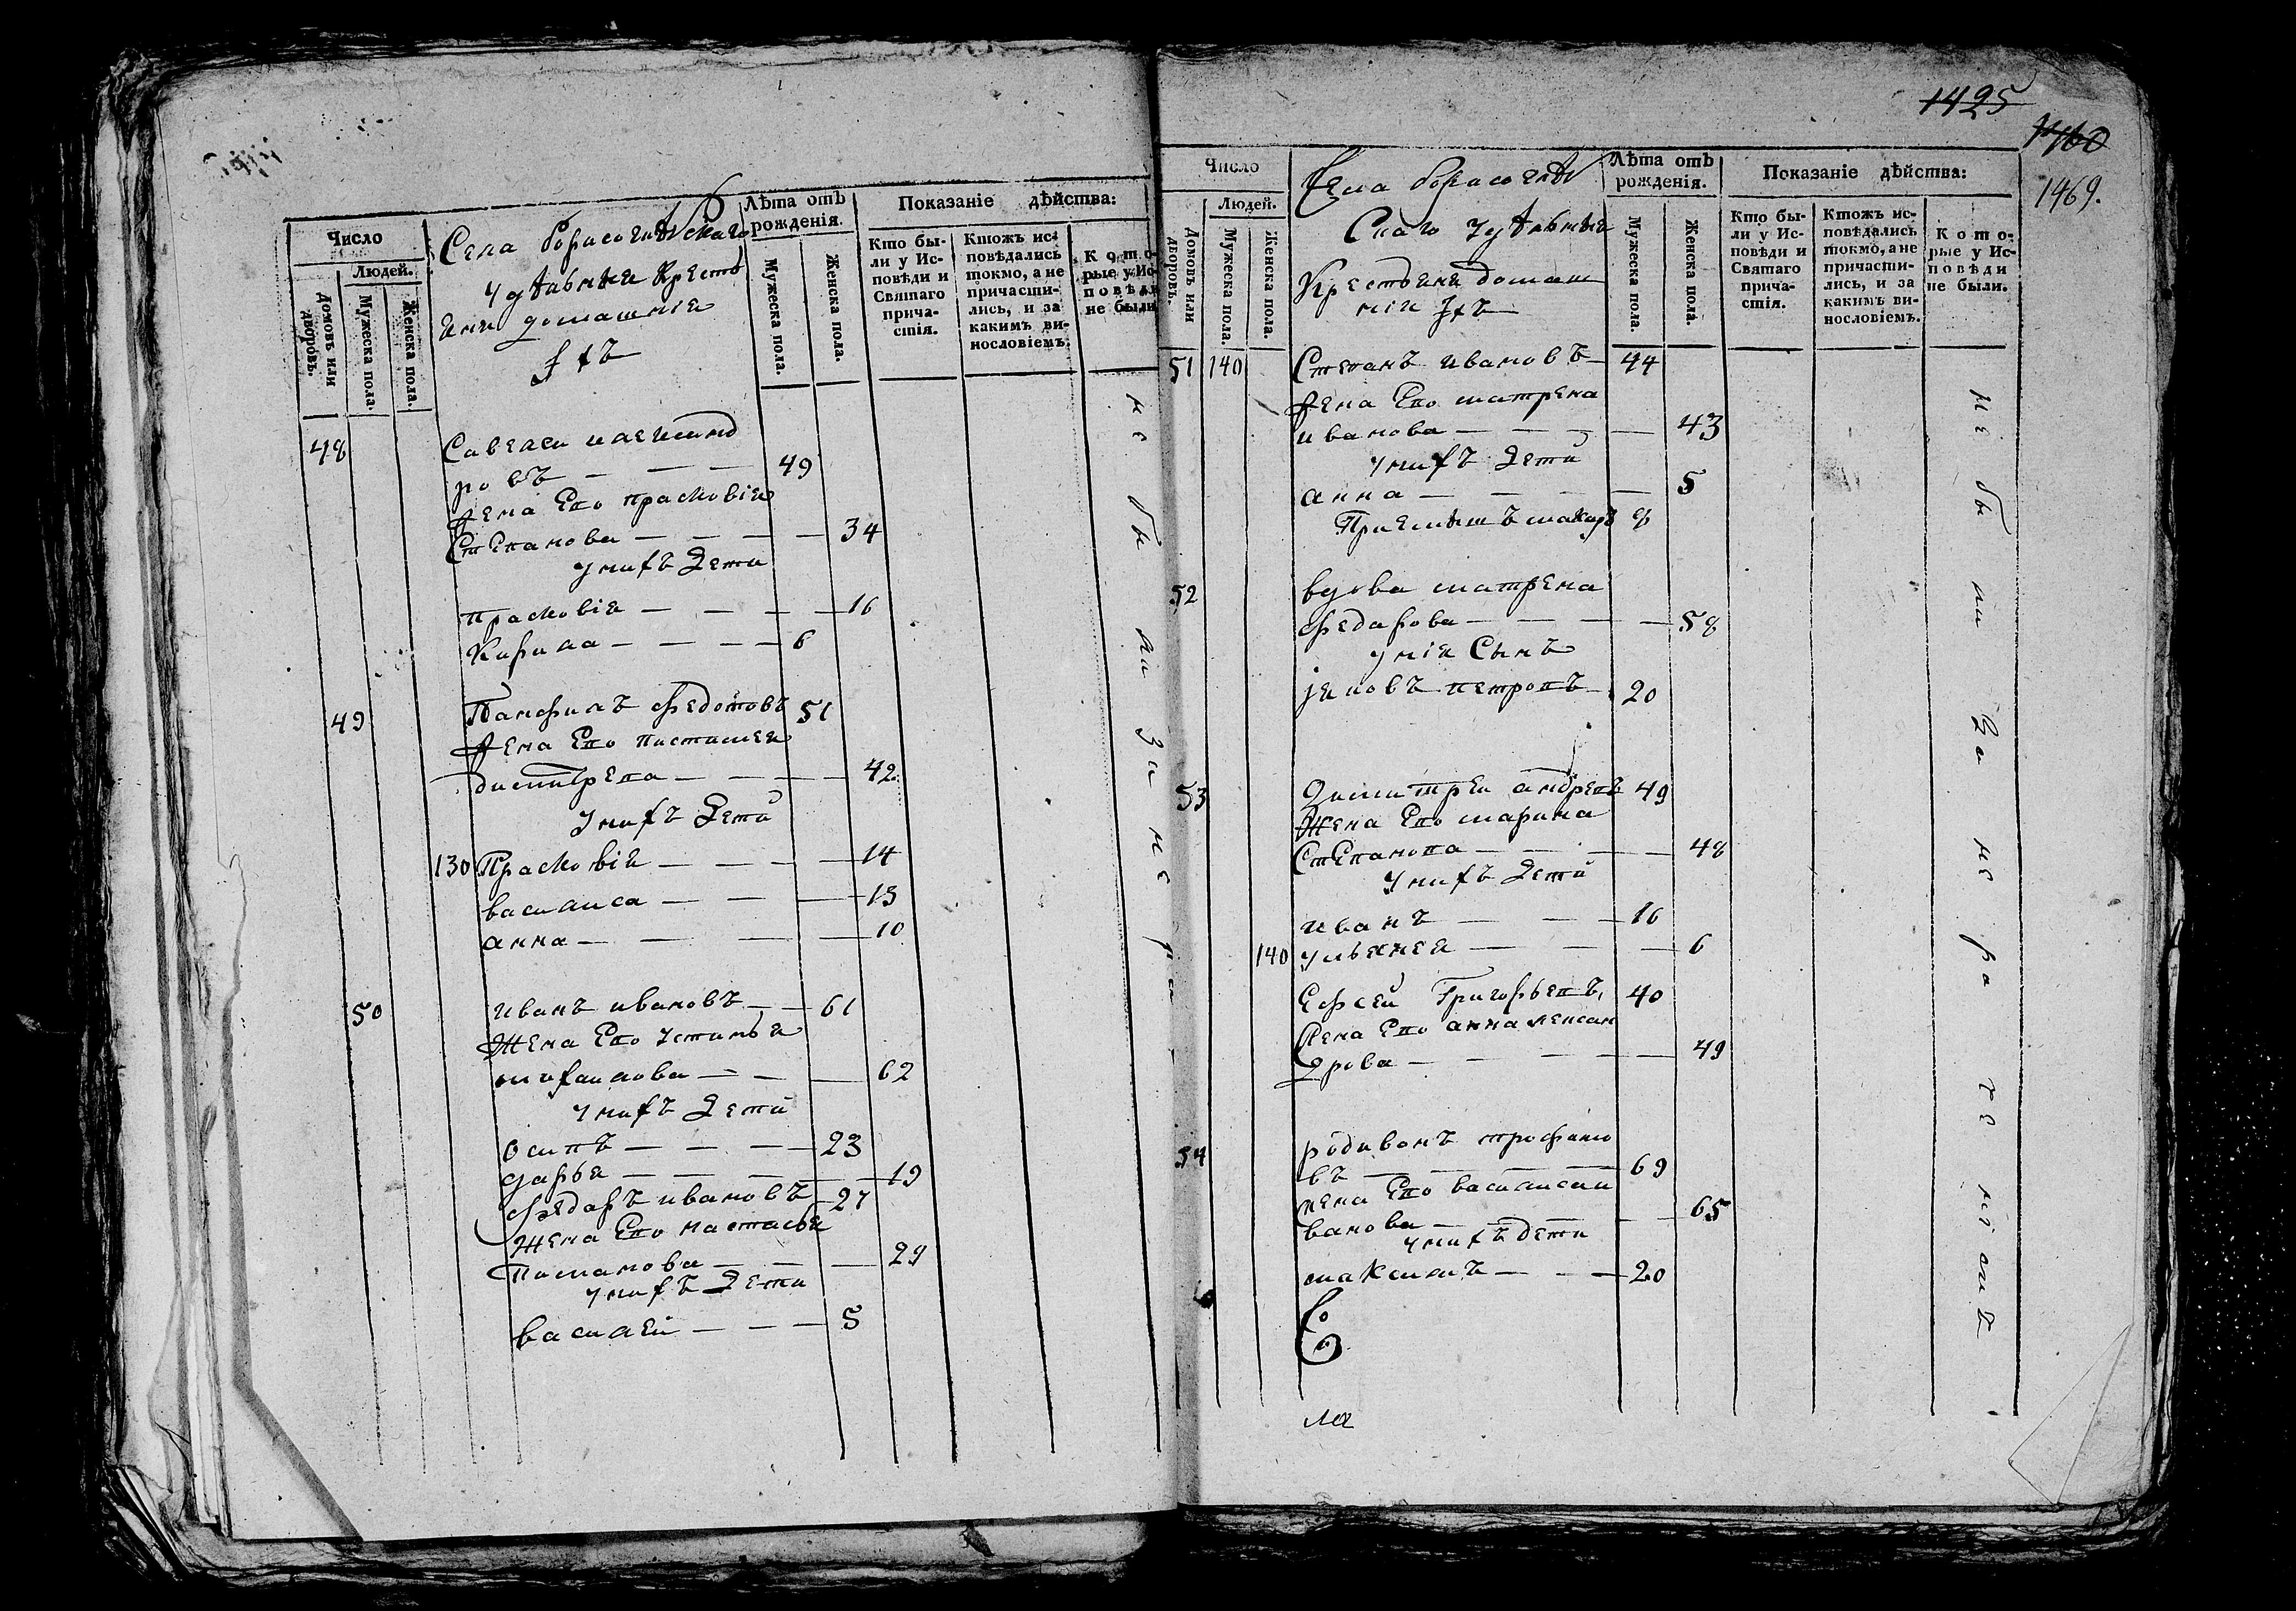 Число
Людей.
Домовъ или дворовъ.
Мужеска пола.
Женска пола.
Села Борисоглебскаго
удѣльныя Кресть
яни домашнія
ихъ
Лѣта отъ рожденія.
Мужеска пола.
Женска пола.
Показаніе дѣйства:
Кто бы-
ли у Ис-
повѣди и
Святаго
прича-
стія.
Ктожъ ис-
повѣдались
токмо, а не
причасти-
лись, и за
какимъ ви-
нословіемъ.
Кото-
рые у Ис-
повѣди
не были
48 Савелей
ровъ — — — 49
жена Его Прасковія
Степанова — — — — 34
у нихъ Дети
Прасковія — — — — 16
Кирила — — — — 6
49 Панфилъ Федотовъ 51
жена Его
дмитрева — — — — 42
У нихъ Дети
130 Прасковія — — — — 14
василиса — — — 13
анна — — — — 10
50 иванъ ивановъ — — 61
Жена Его Устинья
михаилова — — — 62
у нихъ Дети
осипъ — — — — 23
дарья — — — — — 19
Федаръ ивановъ — 27
Жена Его настасья
— — — 29
у нихъ Дети
василей — — — 5
не бы ли за не ра
1425
1460
1469.
Число
Людей.
Домовъ или дворовъ.
Мужеска пола.
Женска пола.
Села Борисоглеб
Скаго удѣльныя
Крестьяня домаш
нія ихъ
Лѣта отъ рожденія.
Мужеска пола.
Женска пола.
Показаніе дѣйства:
Кто бы-
ли у Ис-
повѣди и
Святаго
прича-
стія.
Ктожъ ис-
повѣдались
токмо, а не
причасти-
лись, и за
какимъ ви-
нословіемъ.
Кото-
рые у Ис-
повѣди
не были.
51 140 Степанъ ивановъ — 44
жена Его матрена
иванова — — — — 43
у нихъ Дети
анна — — — — 5
Приемышъ макаръ 8
52 вдова матрена
федарова — — — — 58
у нія Сынъ
яковъ петровъ — 20
53 Димитрей андревъ 49
Жена Его марина
Степанова — — — — 48
У нихъ Дети
иванъ — — — 16
140 ульянея — — — 6
Ефсей Григорьевъ, 40
жена Его анна лексан
дрова — — — — — 49
54 родивонъ трофимо
въ — — — — 69
жена Его василиса и
ванова — — — — 65
у нихъ дети
максимъ — — — 20
не бы ли за не ра че ніемъ